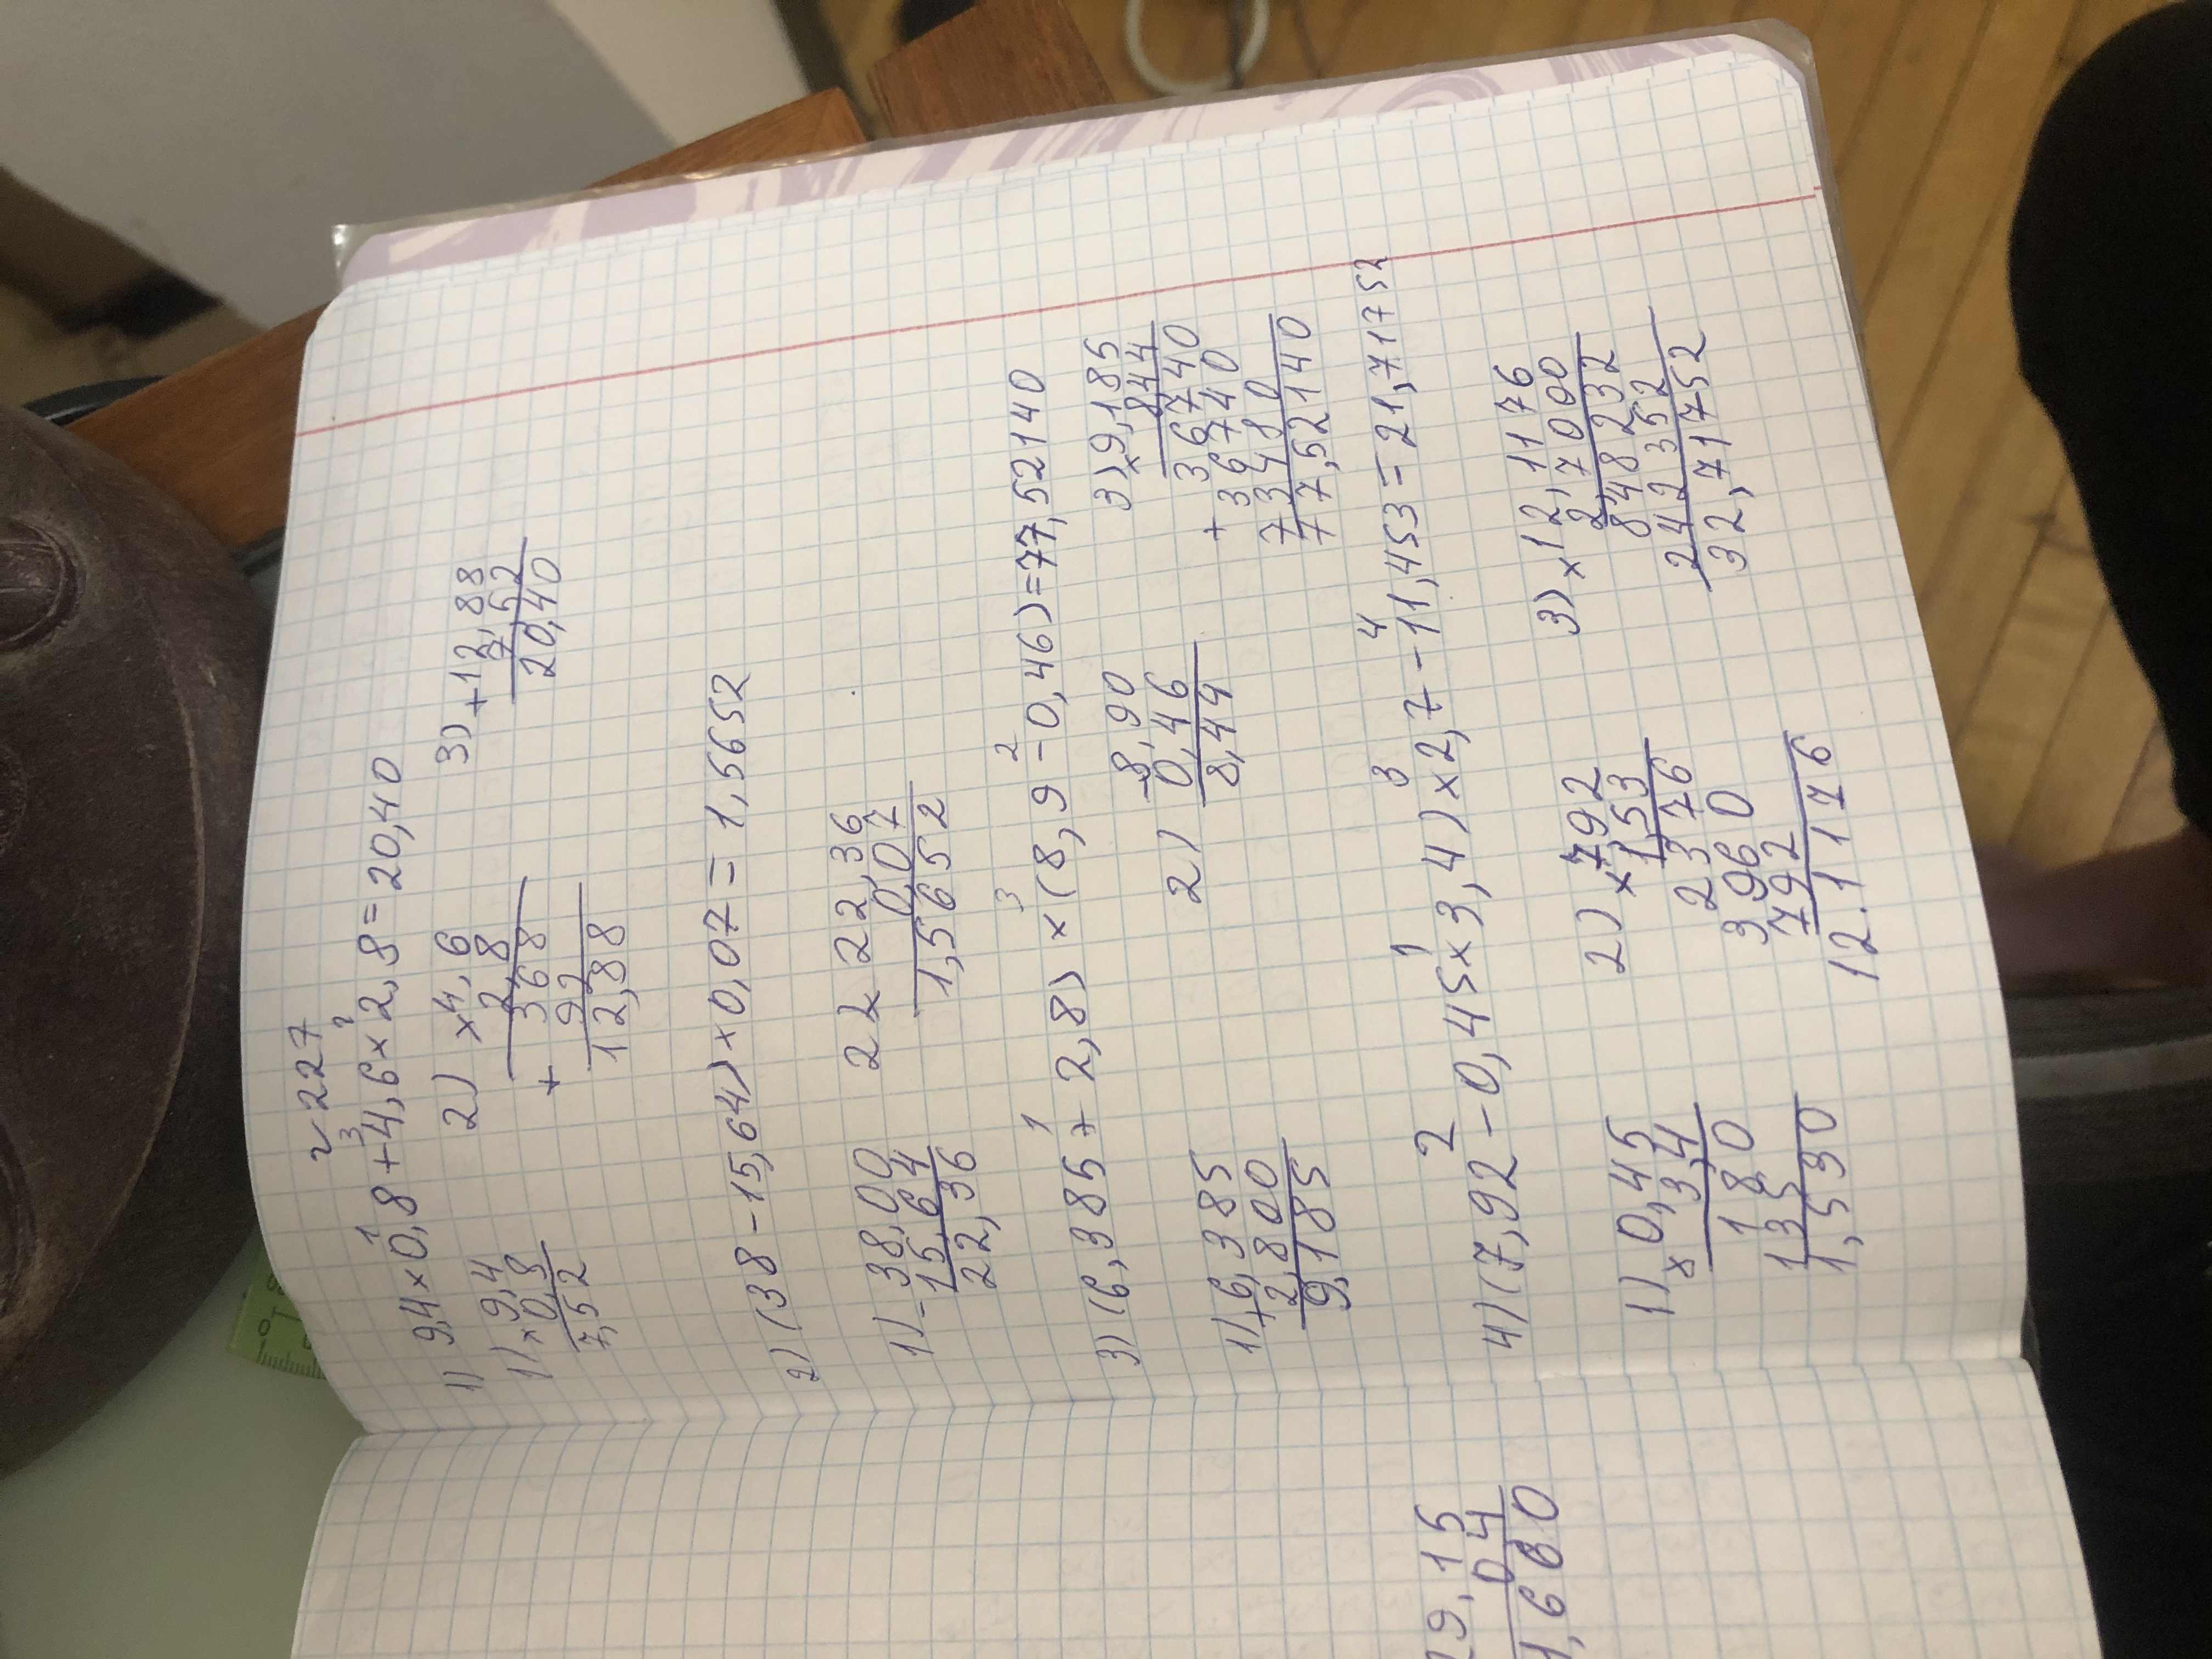 №227
1) 9,4×0,8+4,6×2,8=20,40
1 3 2
1) ×9,4
0,8
7,52
2) ×4,6
2,8
368
+
92
12,88
3) +12,88
7,52
20,40
2) (38-15,64)×0,07=1,5652
1) -38,00
15,64
22,36
2 2 22,36
0,07
1,5652
3) (6,385+2,8)×(8,9-0,46)=77,52140
1 3 2
1) +6,385
2,800
9,185
2) -8,90
0,46
8,44
3) ×9,185
844
36740
+36740
73480
77,52140
4) (7,92-0,45×3,4)×2,7-11,453=21,717752
2 1 3 4
1) ×0,45
3,4
180
135
1,530
2) ×792
1,53
2376
3960
792
12.1176
3) ×12,1176
2,7000
848232
242352
32,71752
29,15
04
1,600